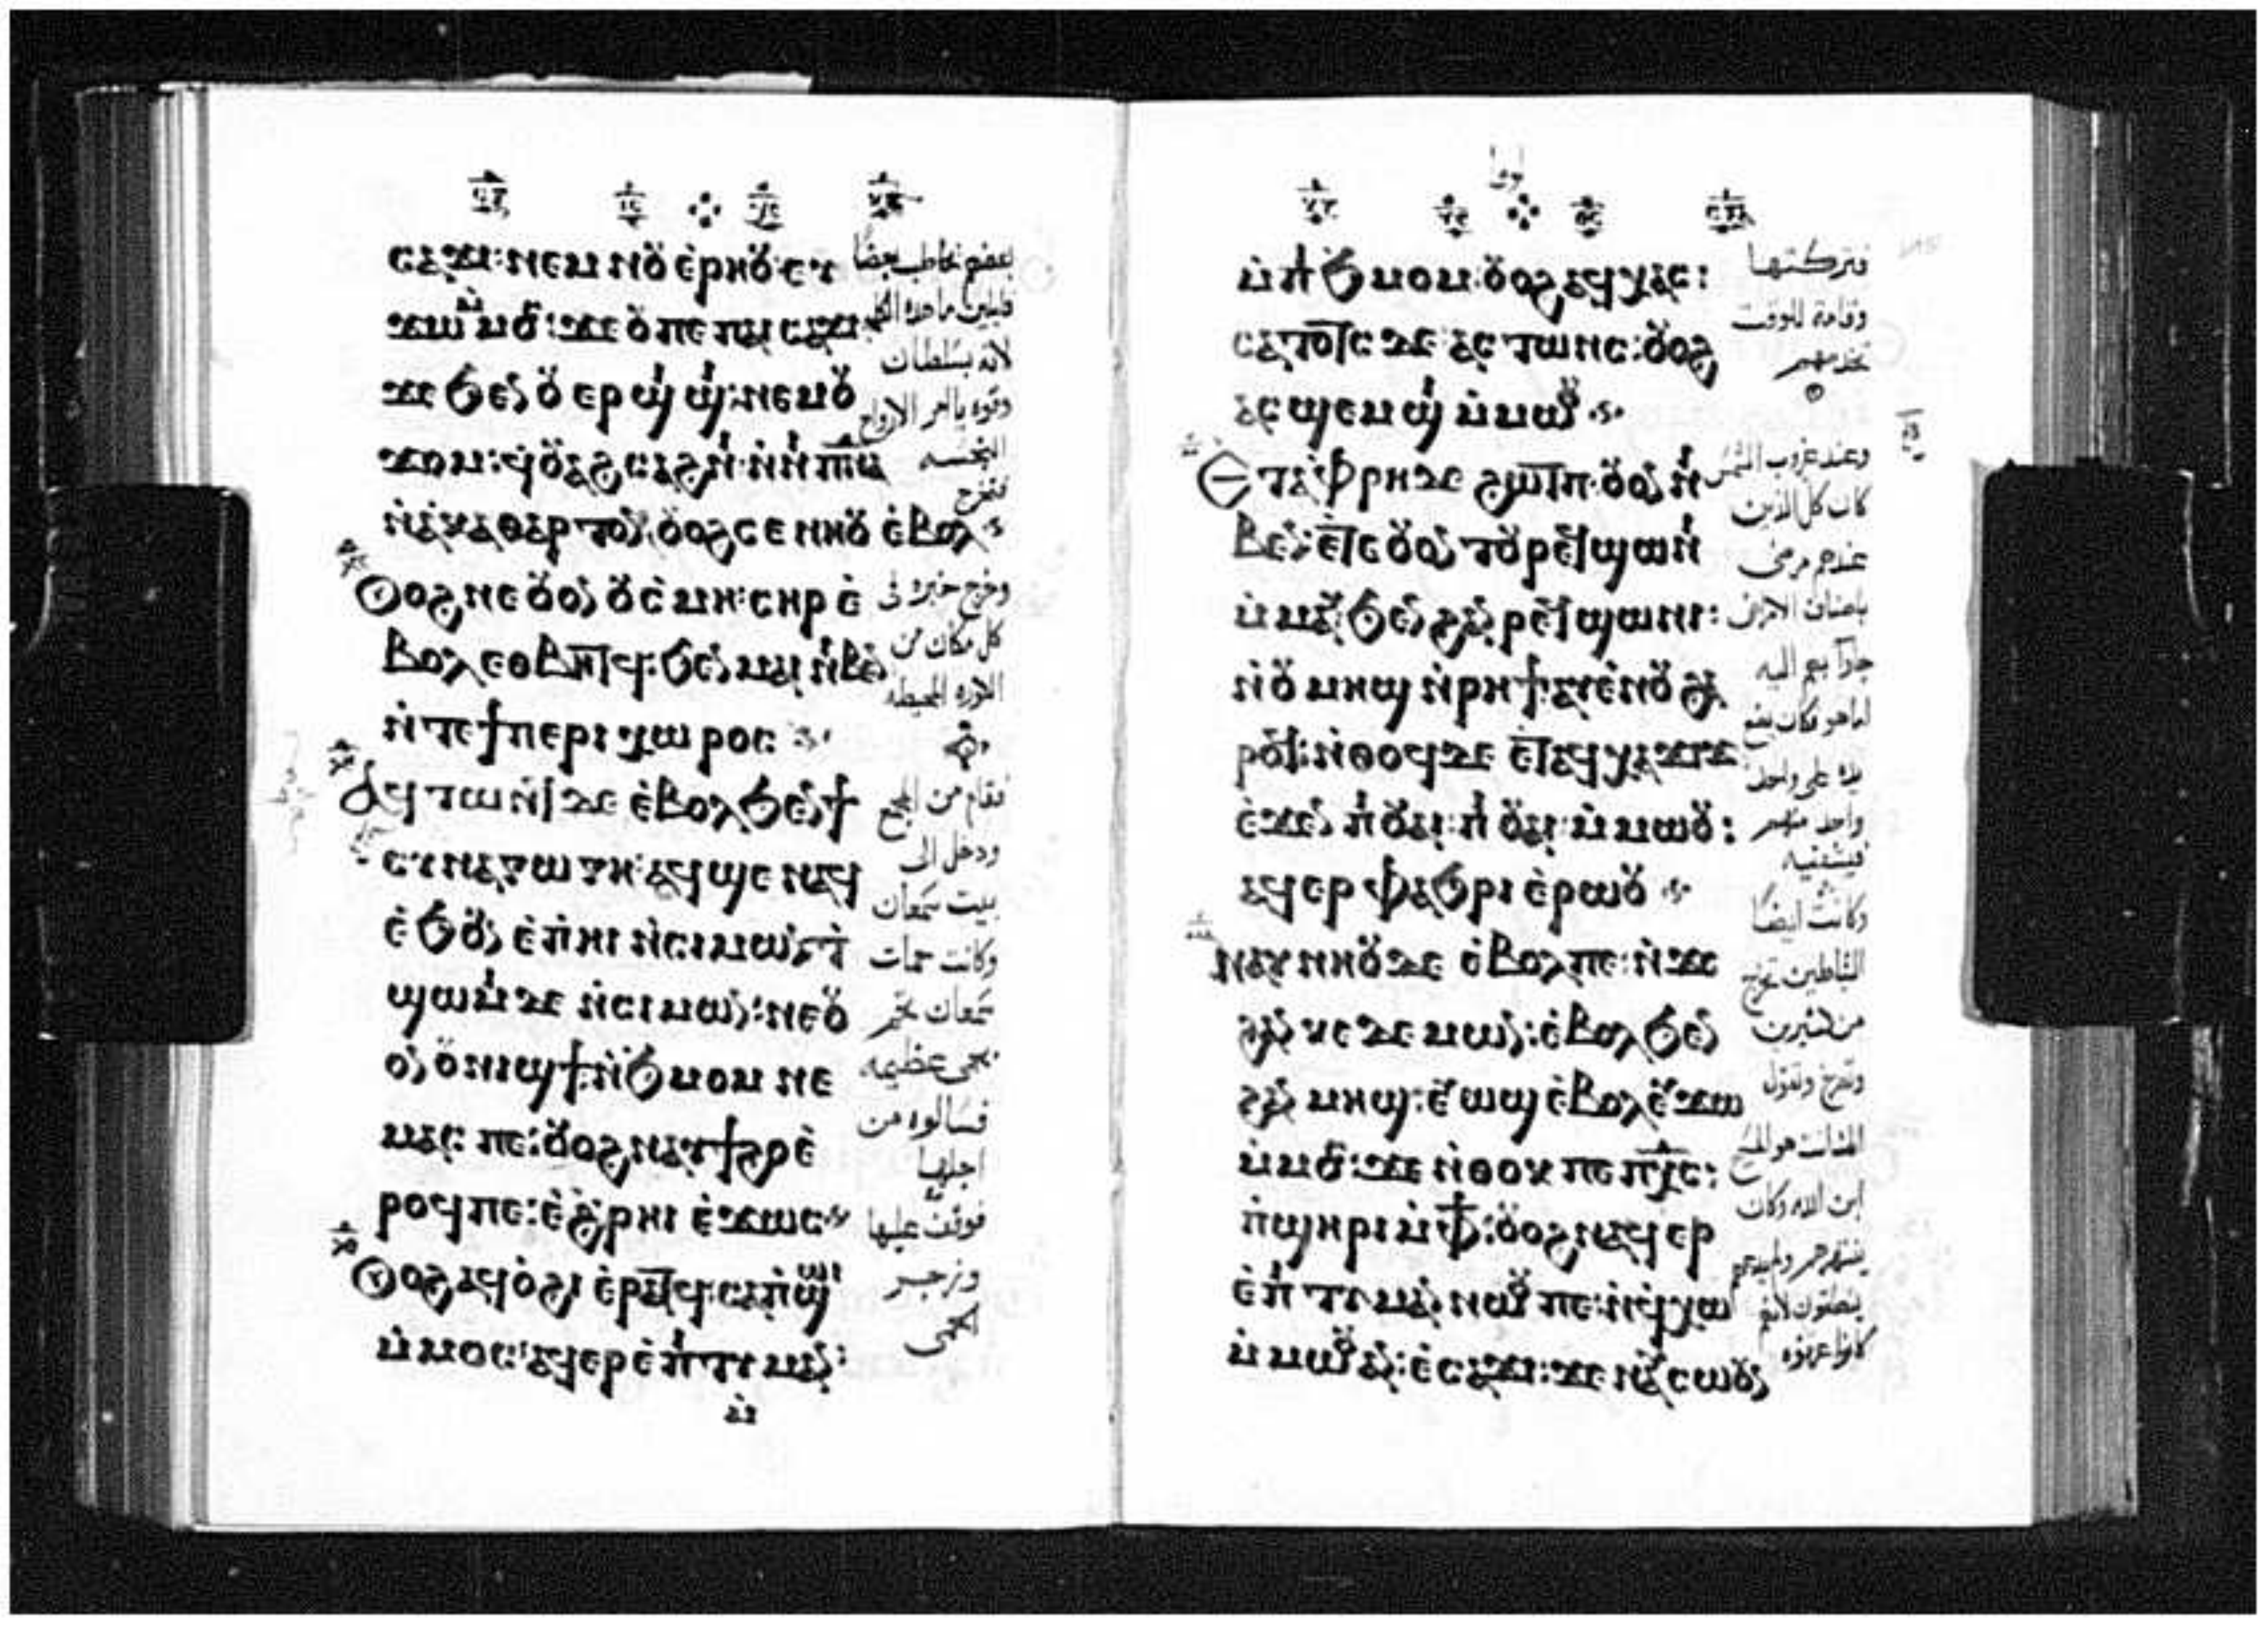 ⲥⲁϫⲓ: ⲛⲉⲙ ⲛⲟⲩ ⲉⲣⲏⲟⲩ ⲉⲩ
ϫⲱ ⲙⲙⲟⲥ: ϫⲉ ⲟⲩ ⲡⲉ ⲡⲁⲓ ⲥⲁϫⲓ
ϫⲉ ϧⲉⲛ ⲟⲩ ⲉⲣϣⲓϣⲓ: ⲛⲉⲙ ⲟⲩ
ϫⲟⲙ: ϥⲟⲩⲁϩⲥⲁϩⲛⲓ ⲛⲛⲓ ⲡⲛⲁ
ⲛⲁⲕⲁⲑⲁⲣⲧⲟⲛ: ⲟⲩⲟϩ ⲥⲉ ⲛⲏⲟⲩ ⲉⲃⲟⲗ
Ⲟⲩⲟϩ ⲛⲉ ⲟⲩⲟⲛ ⲟⲩ ⲥⲙⲏ: ⲥⲏⲣ ⲉ
ⲃⲟⲗ ⲉⲑⲃⲏⲧϥ: ϧⲉⲛ ⲙⲁⲓ ⲛⲓⲃⲉⲛ
ⲛⲧⲉ ϯⲡⲉⲣⲓⲭⲱⲣⲟⲥ
Ⲁϥⲧⲱⲛϥ ϫⲉ ⲉⲃⲟⲗ ϧⲉⲛ ϯ
ⲥⲩⲛⲁⲅⲱⲅⲏ: ⲁϥϣⲉ ⲛⲁϥ
ⲉϧⲟⲩⲛ ⲉⲡⲏⲓ ⲛⲥⲓⲙⲱⲛ: ⲧ
ϣⲱⲙⲓ ϫⲉ ⲛⲥⲓⲙⲱⲛ: ⲛⲉ ⲟⲩ
ⲟⲛ ⲟⲩⲛⲓϣϯ ⲛϧⲙⲟⲙ ⲛⲉ
ⲙⲁⲥ ⲡⲉ: ⲟⲩⲟϩ ⲛⲁⲩϯϩⲟ ⲉ
ⲣⲟϥ ⲡⲉ: ⲉϩⲣⲏⲓ ⲉϫⲱⲥ
Ⲟⲩⲟϩ ⲁϥⲟϩⲓ ⲉⲣⲁⲧϥ: ⲥⲁⲡϣⲱⲓ
ⲙⲙⲟⲥ: ⲁϥⲉⲣⲉⲡⲓⲧⲓⲙⲁⲛ:
بعضهم يخاطب بعضا
قايلين ما هذه الكلمه
لانه بسلطان
وقوه يامر الارواح
النجسه
فتخرج
وخرج خبره فى
كل مكان من
الكوره المحيطه
فقام من المجمع
ودخل الى
بيت سمعان
وكانت حمات
سمعان
بحمى عظيمه
فسالوه من
اجلها
فوقف عليها
وزجر
الحمى
ⲙⲡⲓϧⲙⲟⲙ: ⲟⲩⲟϩ ⲁϥⲭⲁⲥ:
ⲥⲁⲧⲟⲧⲥ ϫⲉ ⲁⲥⲧⲱⲛⲥ: ⲟⲩⲟϩ
ⲁⲥϣⲉⲙϣⲓ ⲙⲙⲱⲟⲩ
Ⲉⲧⲁ ⲫⲣⲏ ϫⲉ ϩⲱⲧⲡ: ⲟⲩⲟⲛ ⲛⲓ
ⲃⲉⲛ: ⲉⲧⲉ ⲟⲩⲟⲛⲧⲟⲩ ⲣⲉϥϣⲱⲛⲓ
ⲙⲙⲁⲩ ϧⲉⲛ ϩⲁⲛ ⲣⲉϥϣⲱⲛⲓ:
ⲛⲟⲩⲙⲏϣ ⲛⲣⲏϯ: ⲁⲩⲉⲛⲟⲩ ϩⲁ
ⲣⲟϥ: ⲛⲑⲟϥ ϫⲉ ⲉⲧⲁϥⲭⲁϫⲓϫ
ⲉϫⲉⲛ ⲡⲓⲟⲩⲁⲓ ⲡⲓⲟⲩⲁⲓ ⲙⲙⲱⲟⲩ:
ⲁϥⲉⲣⲫⲁϧⲣⲓ ⲉⲣⲱⲟⲩ
Ⲛⲁⲩⲛⲏⲟⲩ ϫⲉ ⲉⲃⲟⲗ ⲡⲉ: ⲛϫⲉ
ϩⲁⲛ ⲕⲉ ϫⲉⲙⲱⲛ: ⲉⲃⲟⲗ ϧⲉⲛ
ϩⲁⲛ ⲙⲏϣ: ⲉⲩⲱϣ ⲉⲃⲟⲗ ⲉⲩϫⲱ
ⲙⲙⲟⲥ: ϫⲉ ⲛⲑⲟⲕ ⲡⲉ ⲡⲭⲥ:
ⲡϣⲏⲣⲓ ⲙⲫϯ: ⲟⲩⲟϩ ⲛⲁϥⲉⲣ
ⲉⲡⲓⲧⲓⲙⲁⲛ ⲛⲱⲟⲩ ⲡⲉ: ⲛϥⲭⲱ
ⲙⲙⲱⲟⲩ ⲁⲛ: ⲉⲥⲁϫⲓ: ϫⲉ ⲛⲁⲩⲥⲱⲟⲩⲛ
فتركتها
وقامة للوقت
تخدمهم
وعند غروب الشمس
كان كل الذين
عندهم مرضى
باصناف الامراض
جاوا بهم اليه
اما هو فكان يضع
يده على واحد
واحد منهم
فيشفيه
وكانت ايضا
الشياطين تخرج
من كثيرين
وتصرخ وتقول
انك انت هو المسيح
ابن الله وكان
ينتهرهم ولم يدعهم
ينطقون لانهم
كانوا عرفوه